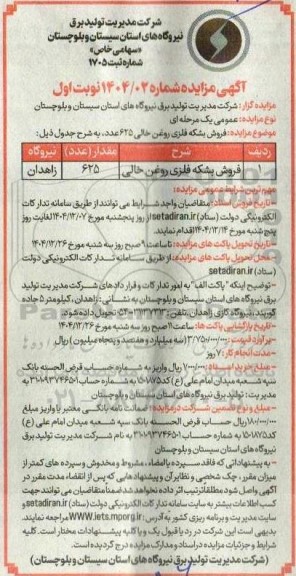 شرکت مدیریت تولید برق
نیروگاه های استان سیستان و بلوچستان
«سهامی خاص»
شماره ثبت ۱۷۰۵
آگهی مزایده شماره ۱۴۰۴/۰۲ نوبت اول
مزایده گزار: شرکت مدیریت تولید برق نیروگاه های استان سیستان و بلوچستان
نوع مزایده: عمومی یک مرحله ای
موضوع مزایده: فروش بشکه فلزی روغن خالی ۶۲۵ عدد، به شرح جدول ذیل:
ردیف شرح مقدار (عدد) نیروگاه
۱ فروش بشکه فلزی روغن خالی ۶۲۵ زاهدان
مهم ترین شرایط عمومی مزایده:
- تاریخ فروش اسناد: متقاضیان واجد شرایط می توانند از طریق سامانه تدارکات
الکترونیکی دولت (ستاد) setadiran.ir از روز پنجشنبه مورخ ۱۴۰۴/۱۲/۰۷ لغایت روز
پنج شنبه مورخ ۱۴۰۴/۱۲/۱۴ اقدام نمایند.
- تاریخ تحویل پاکت های مزایده: تا ساعت ۹ صبح روز سه شنبه مورخ ۱۴۰۴/۱۲/۲۶
- محل تحویل پاکت های مزایده: از طریق سامانه تدارکات الکترونیکی دولت
(ستاد) setadiran.ir
- توضیح اینکه "پاکت الف" به امور تدارکات و قراردادهای شرکت مدیریت تولید
برق نیروگاه های استان سیستان و بلوچستان به نشانی: زاهدان، کیلومتر ۵ جاده
کویته، نیروگاه گازی زاهدان، تلفن: تحویل داده شود.
- تاریخ بازگشایی پاکت ها: ساعت ۱۱ صبح روز سه شنبه مورخ ۱۴۰۴/۱۲/۲۶
- برآورد قیمت: ۳/۷۵۰/۰۰۰/۰۰۰ (سه میلیارد و هفتصد و پنجاه میلیون) ریال
- مدت انجام کار: ۷ روز
- مبلغ خرید اسناد: ۱/۰۰۰/۰۰۰ ریال واریز به شماره حساب قرض الحسنه بانک
سپه شعبه میدان امام علی (ع) کد ۱۵۰۱۸۷۵ به شماره حساب ۳۱۰۰۹۳۷۴۶۵۰۱ به نام شرکت
مدیریت تولید برق نیروگاه های استان سیستان و بلوچستان
- مبلغ و نوع تضمین شرکت در مزایده: ضمانت نامه بانکی معتبر یا واریز مبلغ
ریال حساب قرض الحسنه بانک سپه شعبه میدان امام علی (ع)
کد ۱۵۰۱۸۷۵ به شماره حساب ۳۱۰۰۹۳۷۴۶۵۰۱ به نام شرکت مدیریت تولید برق
نیروگاه های استان سیستان و بلوچستان
- به پیشنهاداتی که فاقد سپرده یا امضاء، مشروط و مخدوش و سپرده های کمتر از
میزان مقرر، چک شخصی و نظایر آن و پیشنهادهایی که پس از انقضاء مدت مقرر در
آگهی واصل شود مطلقا ترتیب اثر داده نخواهد شد. ضمنا متقاضیان می توانند جهت
کسب اطلاعات بیشتر به سایت سامانه تدارکات الکترونیکی دولت (ستاد) setadiran.ir و
سایت مدیریت و برنامه ریزی کشور به آدرس: WWW.iets.mporg.ir مراجعه نمایند.
بدیهی است این شرکت در رد یا قبول یک و یا کلیه پیشنهادات مختار است. کلیه
شرایط و جزئیات مزایده در اسناد و مدارک مزایده درج گردیده است.
(شرکت مدیریت تولید برق نیروگاه های استان سیستان و بلوچستان)